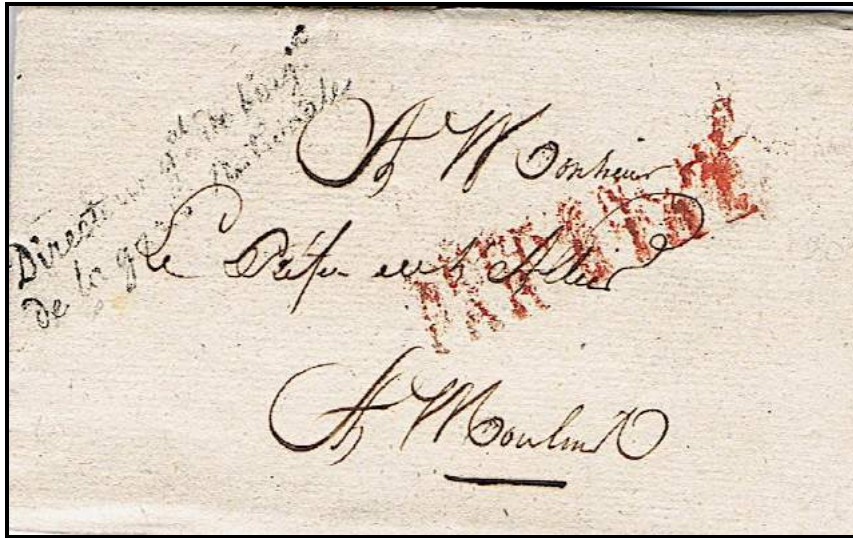 Directeur gal
de la garde Nationale
A Monsieur
Le Préfet de l'Allier
A Moulins